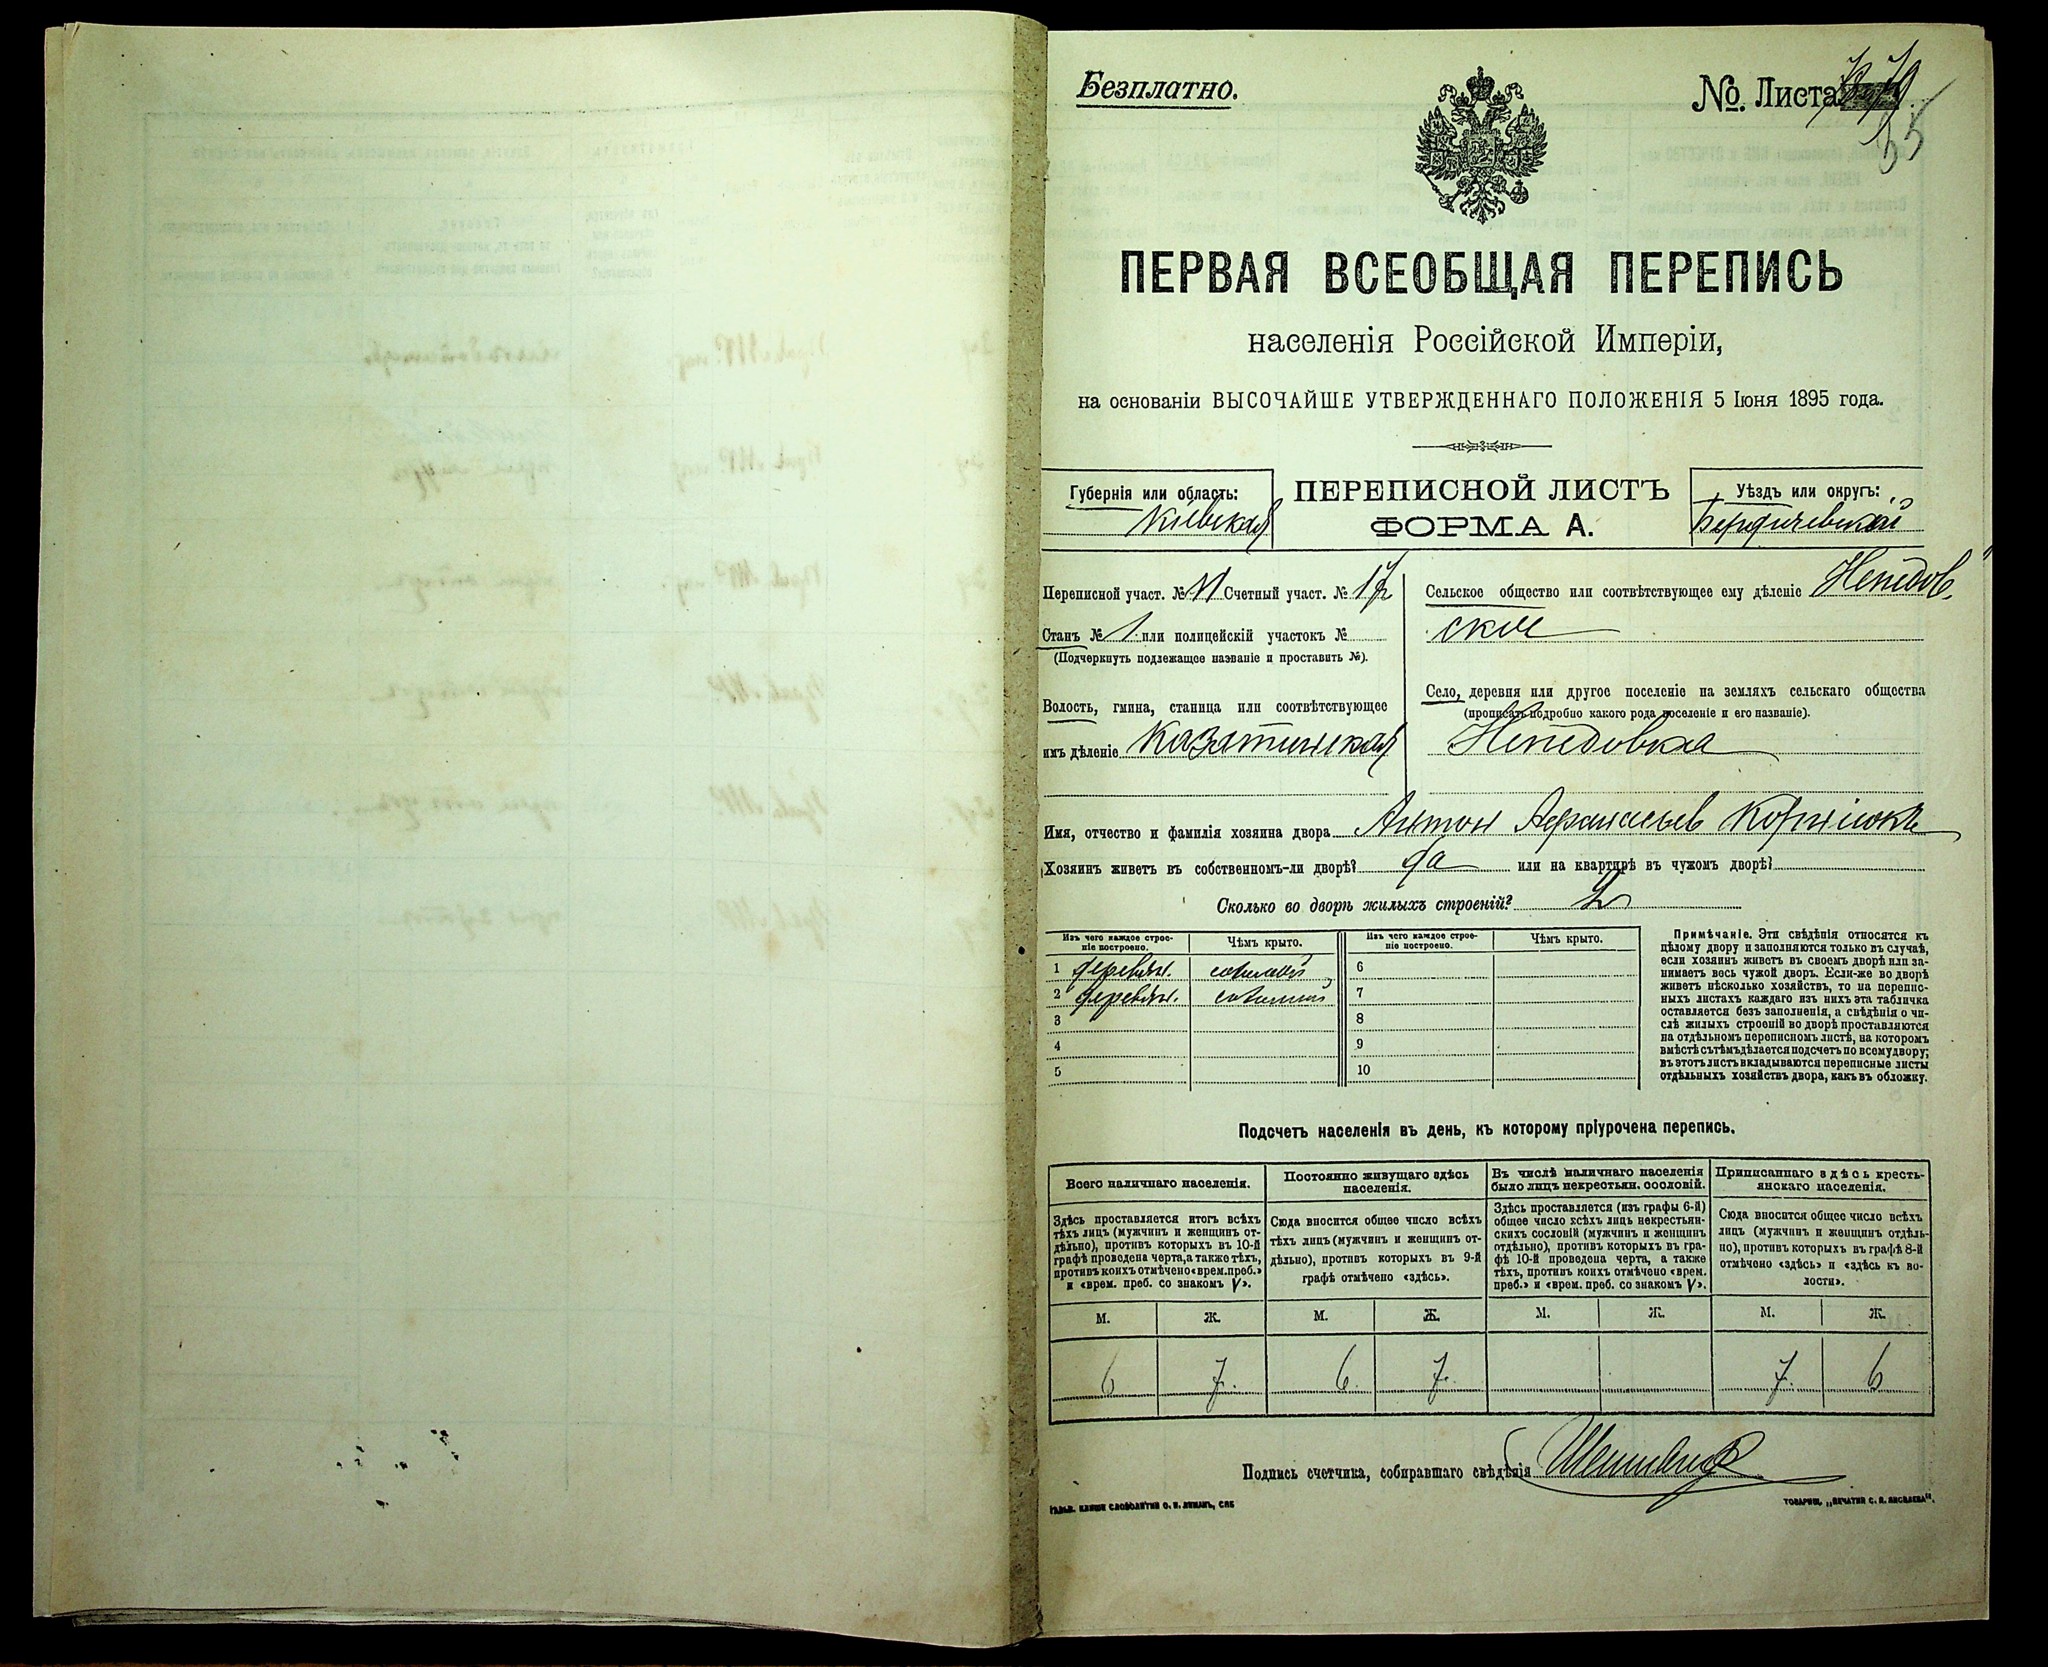 Безплатно.
№. Листа
55
ПЕРВАЯ ВСЕОБЩАЯ ПЕРЕПИСЬ
населенія Россійской Имперіи,
на основаніи ВЫСОЧАЙШЕ УТВЕРЖДЕННАГО ПОЛОЖЕНІЯ 5 Іюня 1895 года.
Губернія или область:
Кіевская
ПЕРЕПИСНОЙ ЛИСТЪ
ФОРМА А.
Уѣздъ или округъ:
Бердичевскій
Переписной участ. № Счетный участ. №
Станъ № 1. или полицейскій участокъ №
(Подчеркнуть подлежащее названіе и проставить №).
Волость, гмина, станица или соотвѣтствующее
имъ дѣленіе Казатинская
Сельское общество или соотвѣтствующее ему дѣленіе Непедов
ское
Село, деревня или другое поселеніе на земляхъ сельскаго общества
(прописать подробно какого рода поселеніе и его названіе).
Непедовка
Имя, отчество и фамилія хозяина двора Антон Афанасьев
Хозяинъ живетъ въ собственномъ-ли дворѣ? да или на квартирѣ въ чужомъ дворѣ?
Сколько во дворѣ жилыхъ строеній? 2
Изъ чего каждое строе-
ніе построено.
Чѣмъ крыто.
Изъ чего каждое строе-
ніе построено.
Чѣмъ крыто.
1 деревян. соломой 6
2 деревян. соломой 7
3 8
4 9
5 10
Примѣчаніе. Эти свѣдѣнія относятся къ
цѣлому двору и заполняются только въ случаѣ,
если хозяин живетъ въ своемъ дворѣ или за-
нимаетъ весь чужой дворъ. Если-же во дворѣ
живетъ нѣсколько хозяйствъ, то на перепис-
ныхъ листахъ каждаго изъ нихъ эта табличка
оставляется безъ заполненія, а свѣдѣнія о чи-
слѣ жилыхъ строеній во дворѣ проставляются
на отдѣльномъ переписномъ листѣ, на которомъ
вмѣстѣ съ тѣмъ дѣлается подсчетъ по всему двору;
въ этотъ листъ вкладываются переписные листы
отдѣльныхъ хозяйствъ двора, какъ въ обложку.
Подсчетъ населенія въ день, къ которому пріурочена перепись.
Всего наличнаго населенія.
Здѣсь проставляется итогъ всѣхъ
тѣхъ лицъ (мужчинъ и женщинъ от-
дѣльно), противъ которыхъ въ 10-й
графѣ проведена черта, а также тѣхъ,
противъ коихъ отмѣчено «врем. преб.»
и «врем. преб. со знакомъ V».
Постоянно живущаго здѣсь
населенія.
Сюда вносится общее число всѣхъ
тѣхъ лицъ (мужчинъ и женщинъ от-
дѣльно), противъ которыхъ въ 9-й
графѣ отмѣчено «здѣсь».
Въ числѣ наличнаго населенія
было лицъ некрестьян. сословій.
Здѣсь проставляется (изъ графы 6-й)
общее число всѣхъ лицъ некрестьян-
скихъ сословій (мужчинъ и женщинъ
отдѣльно), противъ которыхъ въ гра-
фѣ 10-й проведена черта, а также
тѣхъ, противъ коихъ отмѣчено «врем.
преб.» и «врем. преб. со знакомъ V».
Приписаннаго здѣсь кресть-
янскаго населенія.
Сюда вносится общее число всѣхъ
лицъ (мужчинъ и женщинъ отдѣль-
но), противъ которыхъ въ графѣ 8-й
отмѣчено «здѣсь» и «здѣсь къ во-
лости».
М. Ж. М. Ж. М. Ж. М. Ж.
6 7. 6. 7. 7. 6
Подпись счетчика, собиравшаго свѣдѣнія
ГАЛЬВ. КЛИШЕ СЛОВОЛИТНИ О. И. ЛЕМАНЪ, СПБ
ТОВАРИЩ. „ПЕЧАТНЯ С. П. ЯКОВЛЕВА".